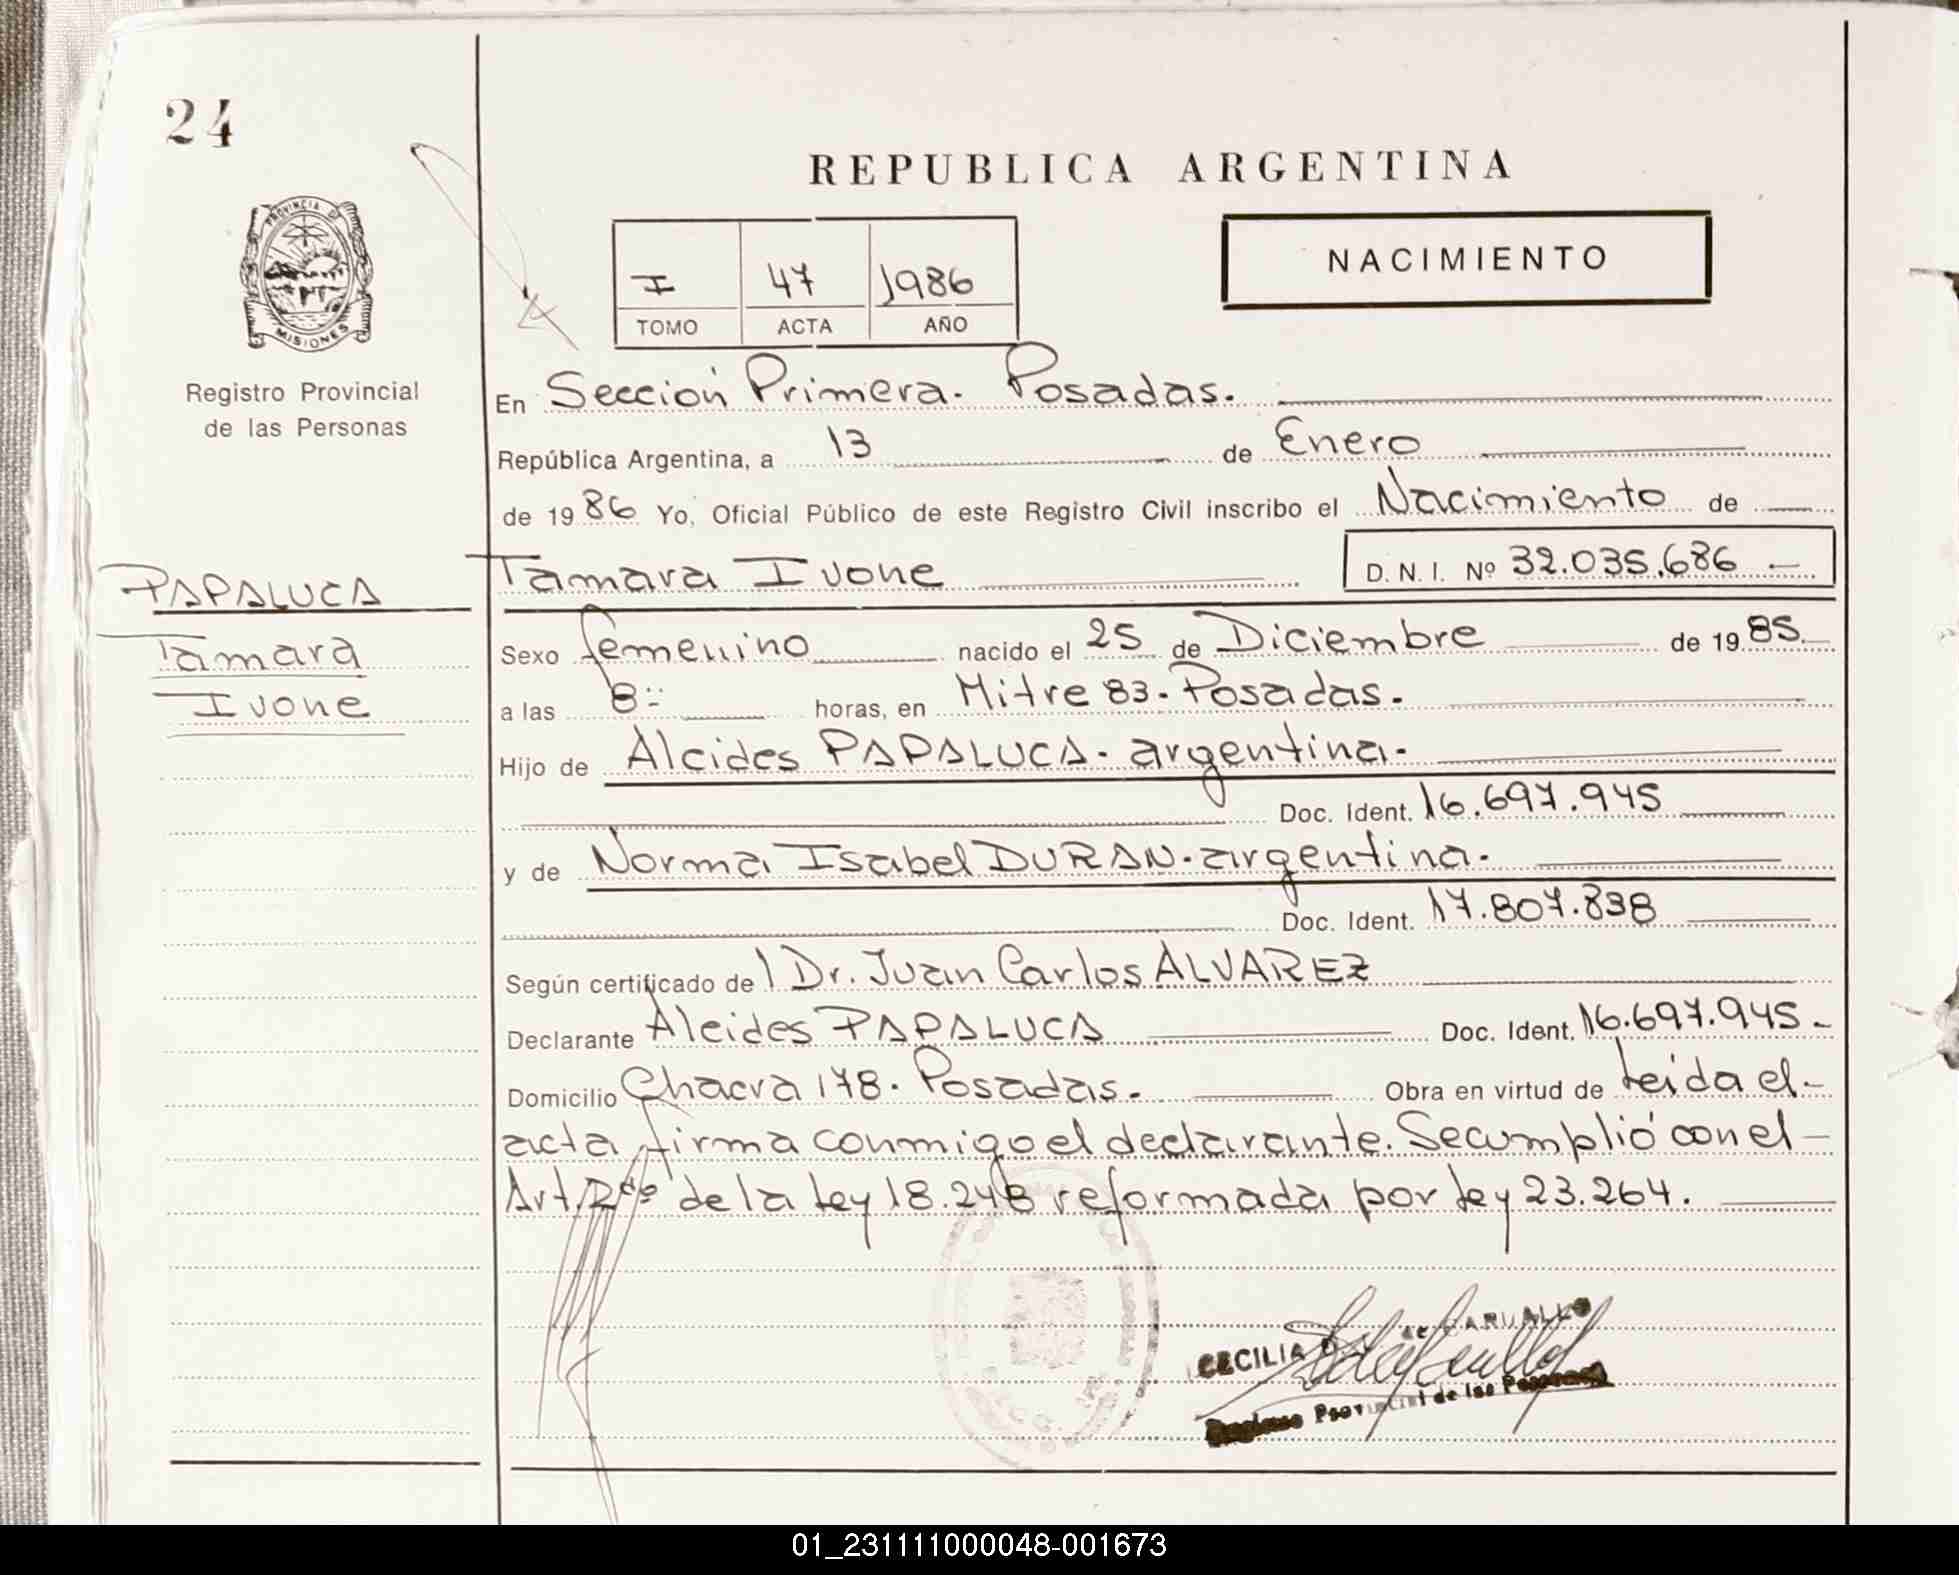 24
PROVINCIA DE
MISIONES
Registro Provincial
de las Personas
PAPALUCA
Tamara
Ivone
REPUBLICA ARGENTINA
I 47 1986
TOMO ACTA AÑO
NACIMIENTO
En Sección Primera. Posadas.
República Argentina, a 13 de Enero
de 1986 Yo, Oficial Público de este Registro Civil inscribo el Nacimiento de
Tamara Ivone D. N. I. Nº 32.035.686
Sexo femenino nacido el 25 de Diciembre de 1985
a las 8:: horas, en Mitre 83. Posadas.
Hijo de Alcides PAPALUCA. argentina.
Doc. Ident. 16.697.945
y de Norma Isabel DURAN. argentina.
Doc. Ident. 17.807.838
Según certificado de Dr. Juan Carlos ALVAREZ
Declarante Alcides PAPALUCA Doc. Ident. 16.697.945.
Domicilio Chacra 178. Posadas. Obra en virtud de Leida el
acta firma conmigo el declarante. Se cumplió con el
Art. 2do de la Ley 18.248 reformada por Ley 23.264.
CECILIA de CARVALLO
Provincial de las Personas
01_231111000048-001673